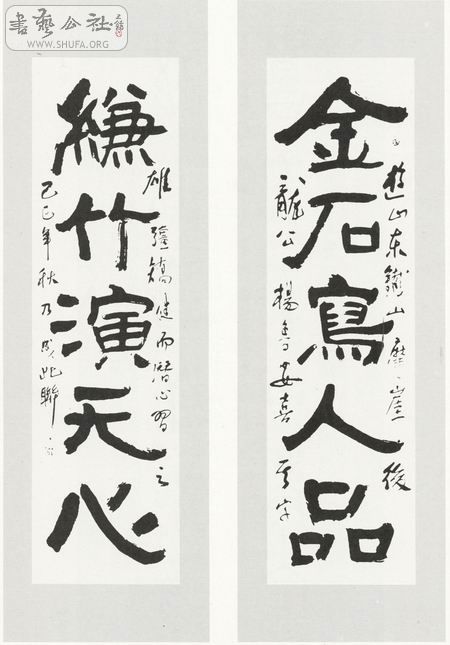 書藝公社
WWW.SHUFA.ORG
金石寫人品
遊山東鐵山摩崖後
龍公楊魯安喜其字
縑竹演天心
雄彊矯健而潛心習之
己巳年秋乃成此聯